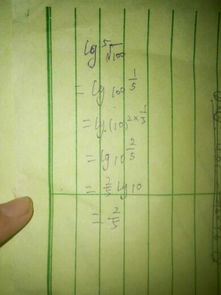 lg⁵√100
= lg 100^(1/5)
= lg (10)^(2×1/5)
= lg 10^(2/5)
= 2/5 lg 10
= 2/5